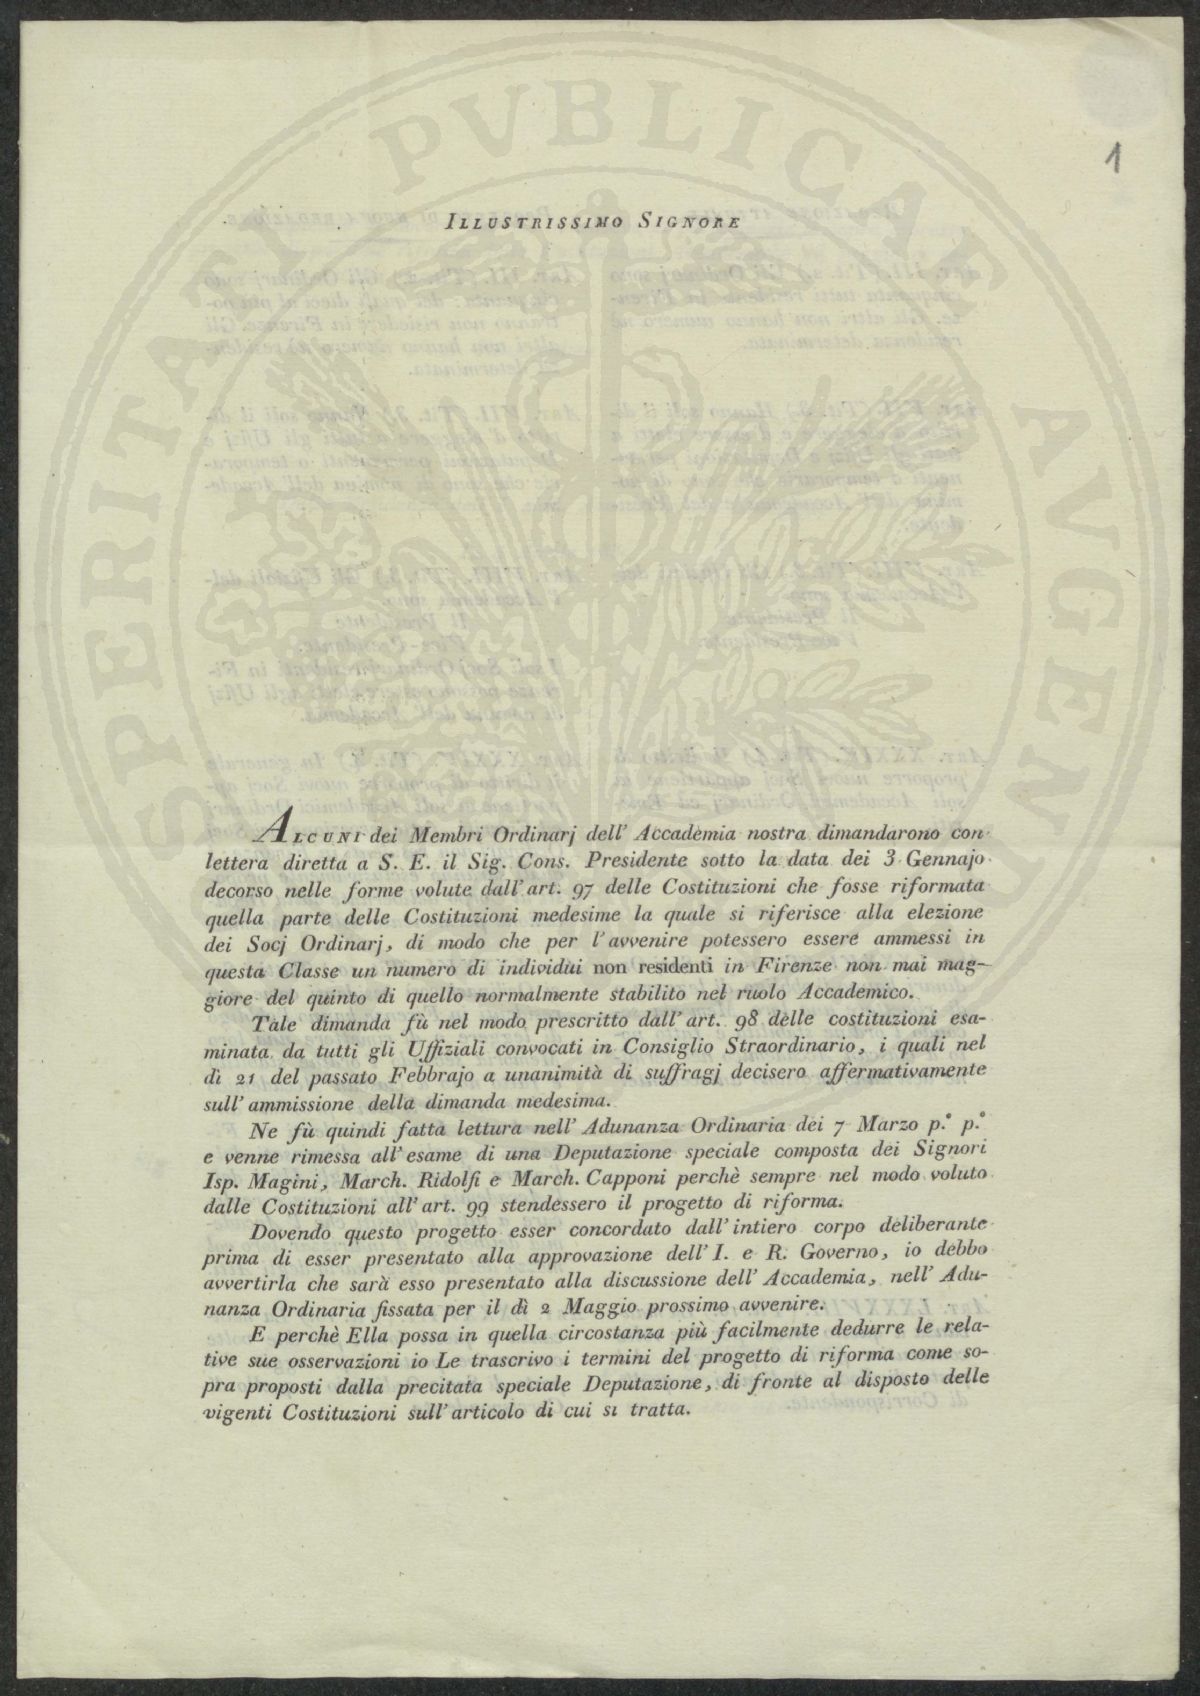 PROSPERITATI PVBLICAE AVGENDAE
1
ILLUSTRISSIMO SIGNORE
ALCUNI dei Membri Ordinarj dell' Accademia nostra dimandarono con
lettera diretta a S. E. il Sig. Cons. Presidente sotto la data dei 3 Gennajo
decorso nelle forme volute dall' art. 97 delle Costituzioni che fosse riformata
quella parte delle Costituzioni medesime la quale si riferisce alla elezione
dei Socj Ordinarj, di modo che per l' avvenire potessero essere ammessi in
questa Classe un numero di individui non residenti in Firenze non mai mag-
giore del quinto di quello normalmente stabilito nel ruolo Accademico.
Tale dimanda fù nel modo prescritto dall' art. 98 delle costituzioni esa-
minata da tutti gli Uffiziali convocati in Consiglio Straordinario, i quali nel
dì 21 del passato Febbrajo a unanimità di suffragj decisero affermativamente
sull' ammissione della dimanda medesima.
Ne fù quindi fatta lettura nell' Adunanza Ordinaria dei 7 Marzo p.° p.°
e venne rimessa all' esame di una Deputazione speciale composta dei Signori
Isp. Magini, March. Ridolfi e March. Capponi perchè sempre nel modo voluto
dalle Costituzioni all' art. 99 stendessero il progetto di riforma.
Dovendo questo progetto esser concordato dall' intiero corpo deliberante
prima di esser presentato alla approvazione dell' I. e R. Governo, io debbo
avvertirla che sarà esso presentato alla discussione dell' Accademia, nell' Adu-
nanza Ordinaria fissata per il dì 2 Maggio prossimo avvenire.
E perchè Ella possa in quella circostanza più facilmente dedurre le rela-
tive sue osservazioni io Le trascrivo i termini del progetto di riforma come so-
pra proposti dalla precitata speciale Deputazione, di fronte al disposto delle
vigenti Costituzioni sull' articolo di cui si tratta.